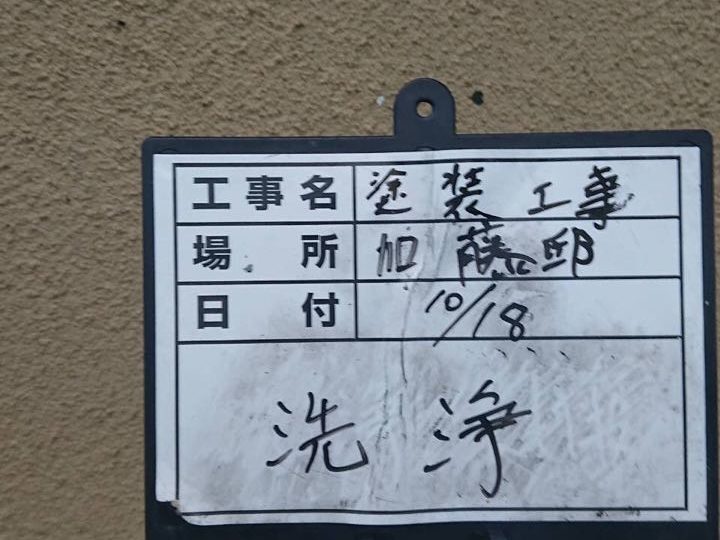 工事名 塗装工事
場所 加藤邸
日付 10/18
洗浄